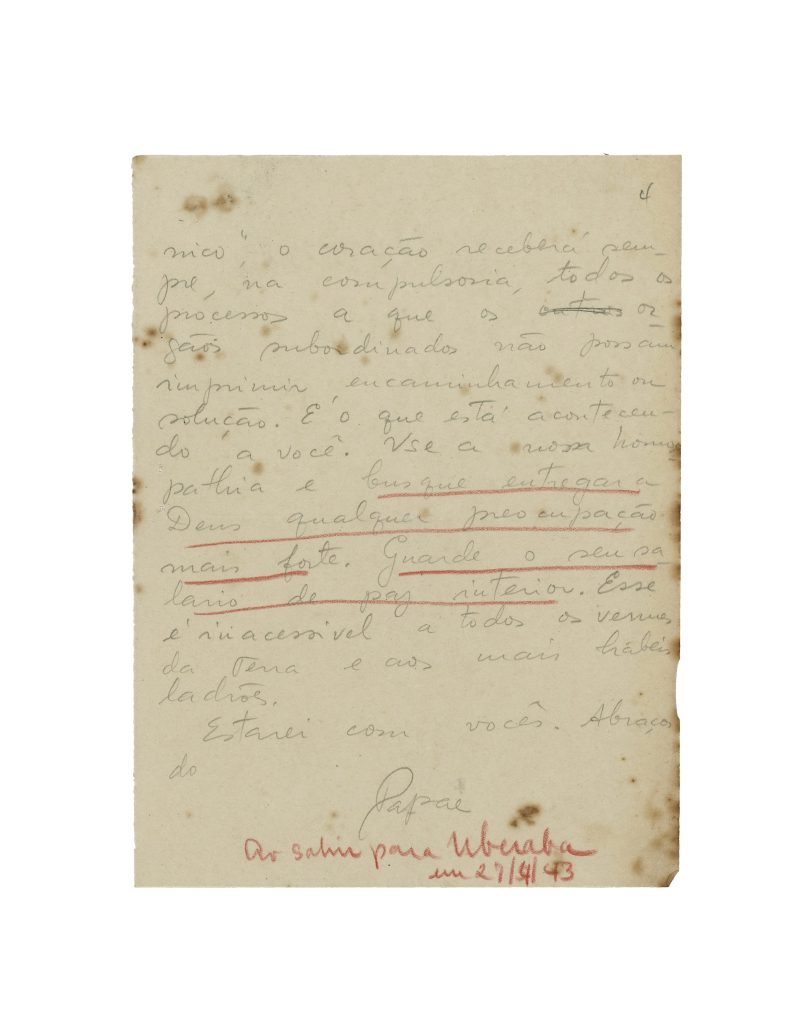 4
nico", o coração receberá sem-
pre, na compulsoria, todos os
processos a que os outros or
gãos subordinados não possam
imprimir encaminhamento ou
solução. E' o que está acontecen-
do a você. Use a nossa homeo
pathia e busque entregar a
Deus qualquer preocupação
mais forte. Guarde o seu sa
lario de paz interior. Esse
é inacessivel a todos os vermes
da Terra e aos mais habeis
ladrões.
Estarei com vocês. Abraços
do
Papae
Ao sahir para Uberaba
em 27/4/43